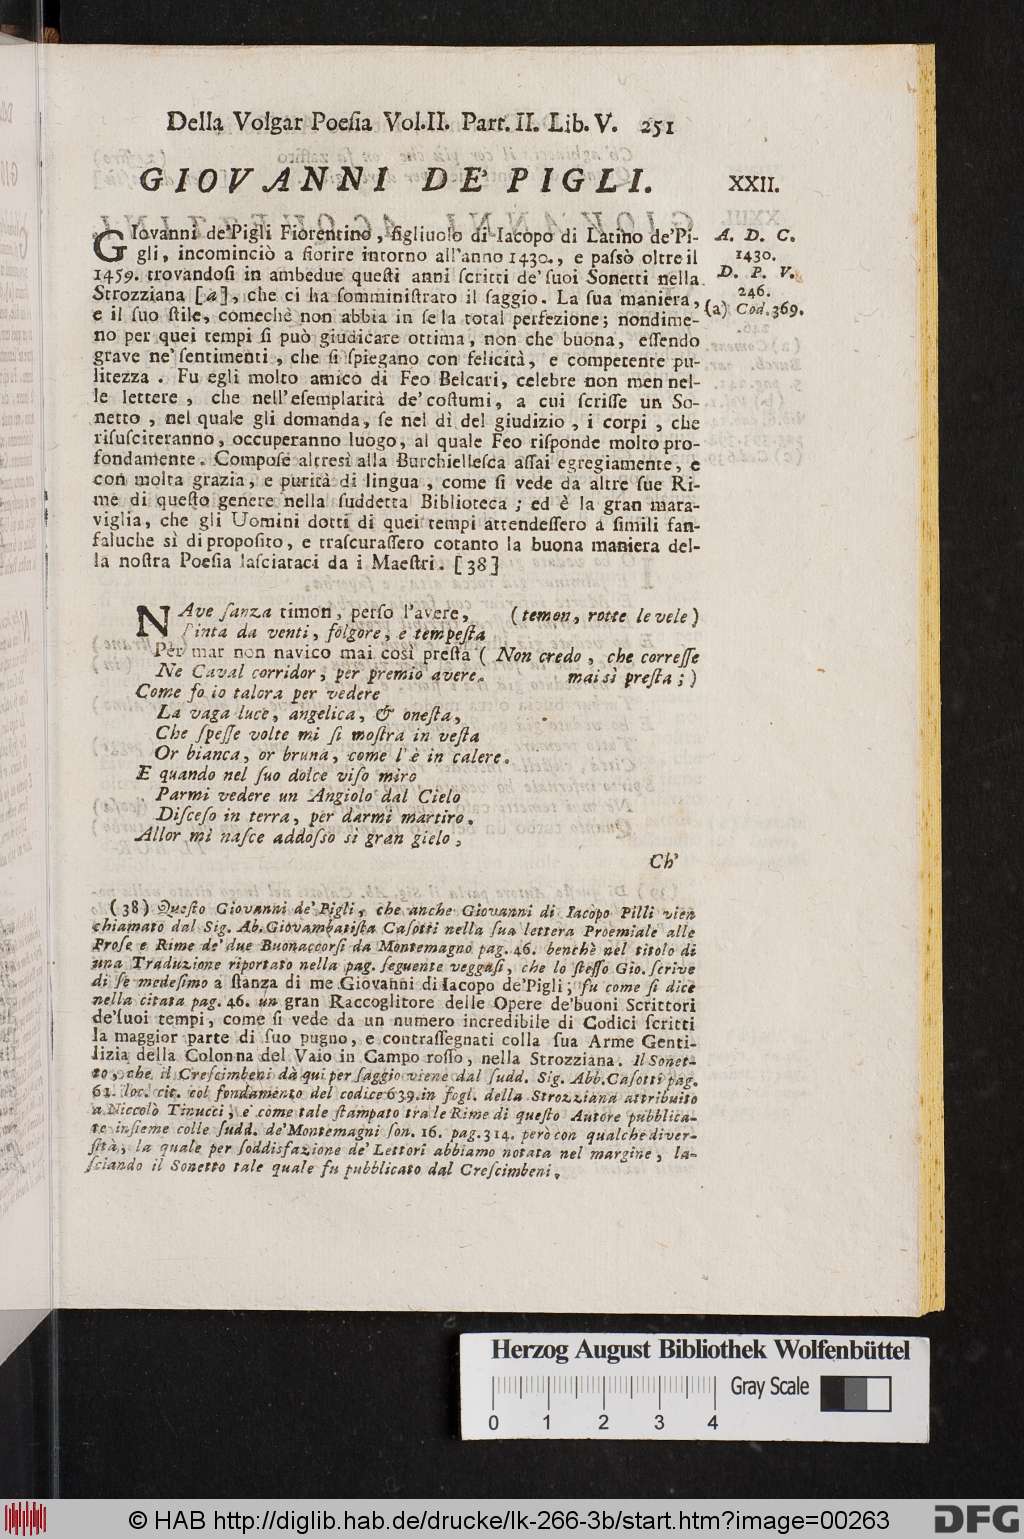 Della Volgar Poeſia Vol.II. Part. II. Lib. V. 251
GIOVANNI DE' PIGLI.
XXII.
GIovanni de'Pigli Fiorentino, figliuolo di Iacopo di Latino de'Pi-
gli, incominciò a fiorire intorno all'anno 1430., e paſsò oltre il
1459. trovandoſi in ambedue queſti anni ſcritti de' ſuoi Sonetti nella
Strozziana [a], che ci ha ſomminiſtrato il ſaggio. La ſua maniera,
e il ſuo ſtile, comechè non abbia in ſe la total perfezione; nondime-
no per quei tempi ſi può giudicare ottima, non che buona, eſſendo
grave ne' ſentimenti, che ſi ſpiegano con felicità, e competente pu-
litezza. Fu egli molto amico di Feo Belcari, celebre non men nel-
le lettere, che nell'eſemplarità de' coſtumi, a cui ſcriſſe un So-
netto, nel quale gli domanda, ſe nel dì del giudizio, i corpi, che
riſuſciteranno, occuperanno luogo, al quale Feo riſponde molto pro-
fondamente. Compoſe altresì alla Burchielleſca aſſai egregiamente, e
con molta grazia, e purità di lingua, come ſi vede da altre ſue Ri-
me di queſto genere nella ſuddetta Biblioteca; ed è la gran mara-
viglia, che gli Uomini dotti di quei tempi attendeſſero a ſimili fan-
faluche sì di propoſito, e traſcuraſſero cotanto la buona maniera del-
la noſtra Poeſia laſciataci da i Maeſtri. [38]
A. D. C.
1430.
D. P. V.
246.
(a) Cod. 369.
NAve ſanza timon, perſo l'avere, (temon, rotte le vele)
Spinta da venti, folgore, e tempeſta
Per mar non navico mai così preſta (Non credo, che correſſe
Ne Caval corridor, per premio avere. mai sì preſta;)
Come fo io talora per vedere
La vaga luce, angelica, & oneſta,
Che ſpeſſe volte mi ſi moſtra in veſta
Or bianca, or bruna, come l'è in calere.
E quando nel ſuo dolce viſo miro
Parmi vedere un Angiolo dal Cielo
Diſceſo in terra, per darmi martiro.
Allor mi naſce addoſso sì gran gielo,
Ch'
(38) Queſto Giovanni de' Pigli, che anche Giovanni di Iacopo Pilli vien
chiamato dal Sig. Ab. Giovambatiſta Caſotti nella ſua lettera Proemiale alle
Proſe e Rime de' due Buonaccorſi da Montemagno pag. 46. benchè nel titolo di
una Traduzione riportato nella pag. ſeguente veggaſi, che lo ſteſſo Gio. ſcrive
di ſe medeſimo a ſtanza di me Giovanni di Iacopo de'Pigli; fu come ſi dice
nella citata pag. 46. un gran Raccoglitore delle Opere de'buoni Scrittori
de'ſuoi tempi, come ſi vede da un numero incredibile di Codici ſcritti
la maggior parte di ſuo pugno, e contraſſegnati colla ſua Arme Genti-
lizia della Colonna del Vaio in Campo roſſo, nella Strozziana. Il Sonet-
to, che il Creſcimbeni dà qui per ſaggio viene dal ſudd. Sig. Abb. Caſotti pag.
61. loc. cit. col fondamento del codice 639. in fogl. della Strozziana attribuito
a Niccolò Tinucci, e come tale ſtampato tra le Rime di queſto Autore pubblica-
te inſieme colle ſudd. de' Montemagni ſon. 16. pag. 314. però con qualche diver-
ſità, la quale per ſoddisfazione de' Lettori abbiamo notata nel margine, la-
ſciando il Sonetto tale quale fu pubblicato dal Creſcimbeni.
Herzog August Bibliothek Wolfenbüttel
Gray Scale
0 1 2 3 4
© HAB http://diglib.hab.de/drucke/lk-266-3b/start.htm?image=00263
DFG